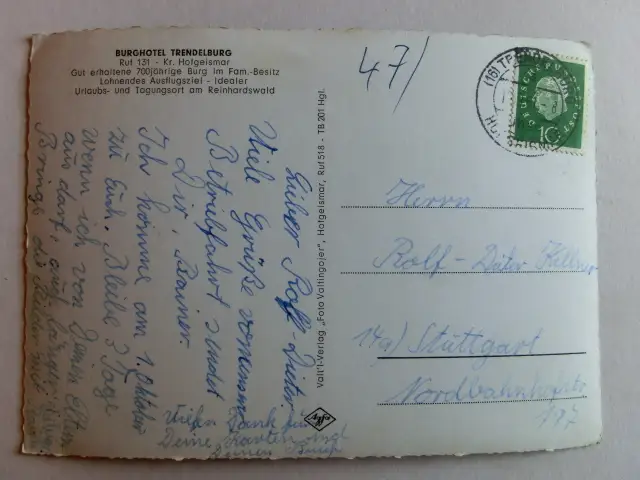 BURGHOTEL TRENDELBURG
Ruf 131 - Kr. Hofgeismar
Gut erhaltene 700jährige Burg im Fam.-Besitz
Lohnendes Ausflugsziel - Idealer
Urlaubs- und Tagungsort am Reinhardswald
47/
(16) TREND
HOFGEISMAR
DEUTSCHE BUNDESPOST
10
Lieber Rolf-Dieter
Viele Grüße von einer
Betriebsfahrt sendet
Dir Rainer.
Ich komme am 1. Oktober
zu Euch. Bleibe 3 Tage
wenn ich von Deinen Eltern
aus darf.
Bringe die
Vielen Dank für
Deine Karten und
Deinen Brief
Voltl-Verlag „Foto Valtingojer", Hofgeismar, Ruf 518 - TB 201 Hgl.
Agfa
Herrn
Rolf-Dieter
14a) Stuttgart
Nordbahnhofstr
117